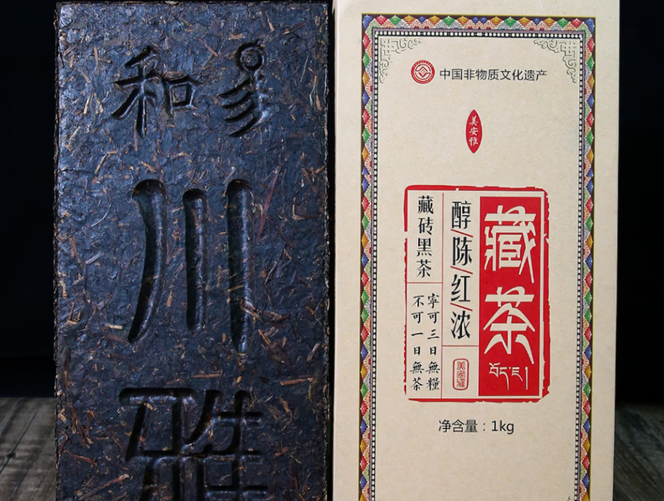 和
川
雅
中国非物质文化遗产
美安雅
藏茶
བོད་ཇ།
醇/陈/红/浓
藏砖黑茶
寧可三日無糧
不可一日無茶
净含量：1kg